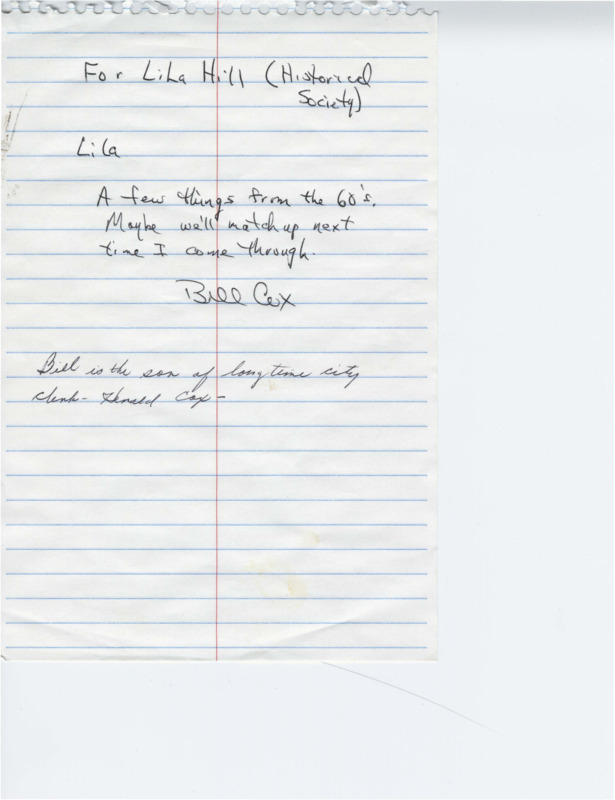 For LiLa Hill (Historical
Society)
Lila
A few things from the 60's.
Maybe we'll match up next
time I come through.
Bill Cox
Bill is the son of longtime city
clerk - Cox -